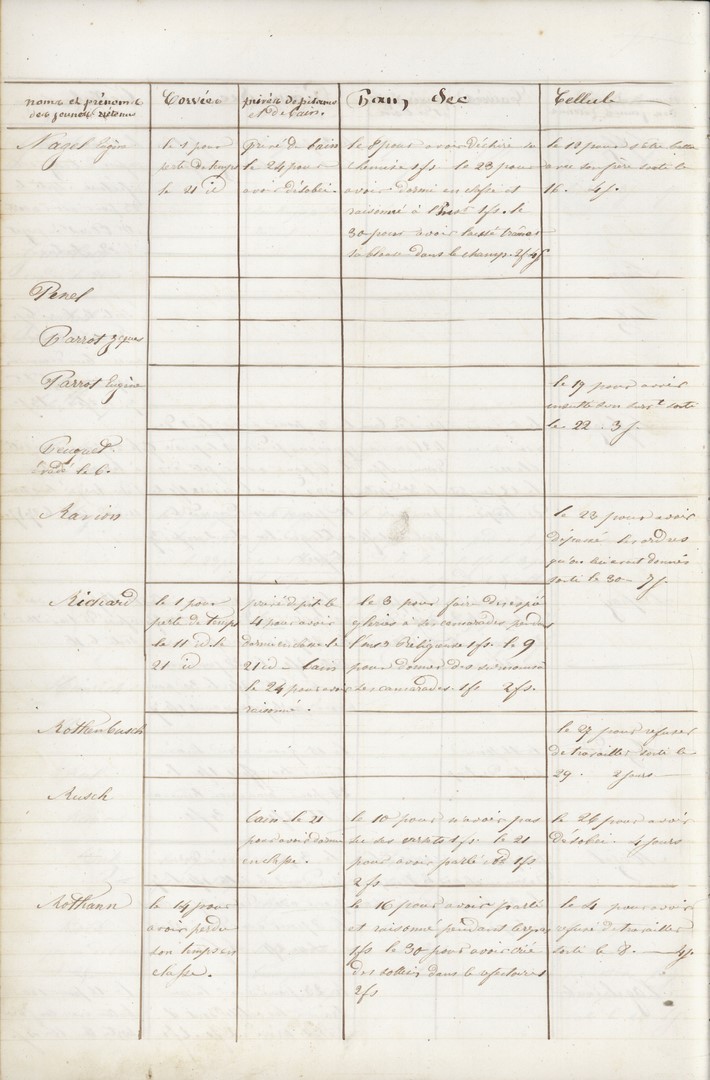 noms et prénoms des jeunes détenus
Corvée
privés de pitance et de bain.
Pain Sec
Cellule
Nagel Eugène
le 1 pour
perte de temps
le 21 id
privé de bain
le 24 pour
avoir désobéi.
le 8 pour avoir déchiré sa
chemise 1fs. le 23 pour
avoir dormi en classe et
raisonné à l' 1fs. le
30 pour avoir laissé traîner
sa blouse dans le champ. 2fs 4fs
le 12 pour s'être battu
avec son frère sorti le
16. 4j.
Penel
Parrot Jques
Parrot Eugène
le 19 pour avoir
insulté un survt sorti
le 22. 3j.
Peuquet
Évadé le 6.
Ravion
le 23 pour avoir
les ordres
qu'on lui avait donnés
sorti le 30 7j.
Richard
le 1 pour
perte de temps
le 11 id. le
21 id
privé de pit. le
4 pour avoir
dormi en classe le
21 id bain
le 24 pour avoir
raisonné.
le 3 pour faire des espiè
gleries à ses camarades pendant
l'instr religieuse 1fs. le 9
pour donner des
à ses camarades. 1fs 2fs.
Rothenbusch
le 27 pour refuser
de travailler sorti le
29. 2 jours
Rusch
bain le 21
pour avoir dormi
en classe.
le 10 pour n'avoir pas
su ses versets 1fs. le 21
pour avoir parlé 1fs
2fs
le 26 pour avoir
désobéi. 4 jours
Rothann
le 14 pour
avoir perdu
son temps en
classe.
le 16 pour avoir parlé
et raisonné pendant
1fs le 30 pour avoir crié
des sottises dans le réfectoire 1
2fs
le 4 pour avoir
refusé de travailler
sorti le 8. 4j.